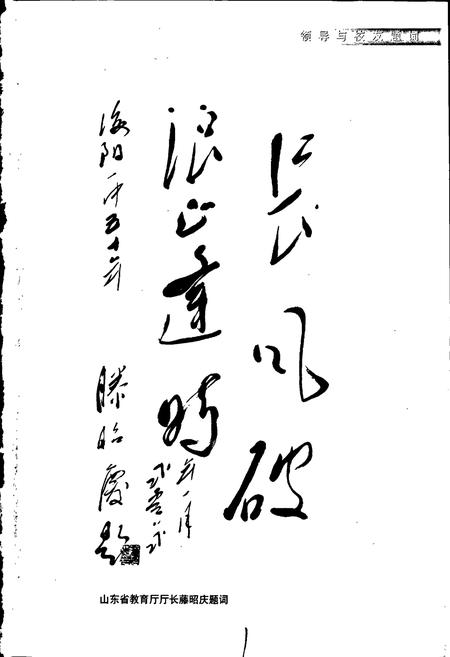 领导与校友题词
长风破
浪正逢时
海阳一中五十年
滕昭庆题
山东省教育厅厅长藤昭庆题词